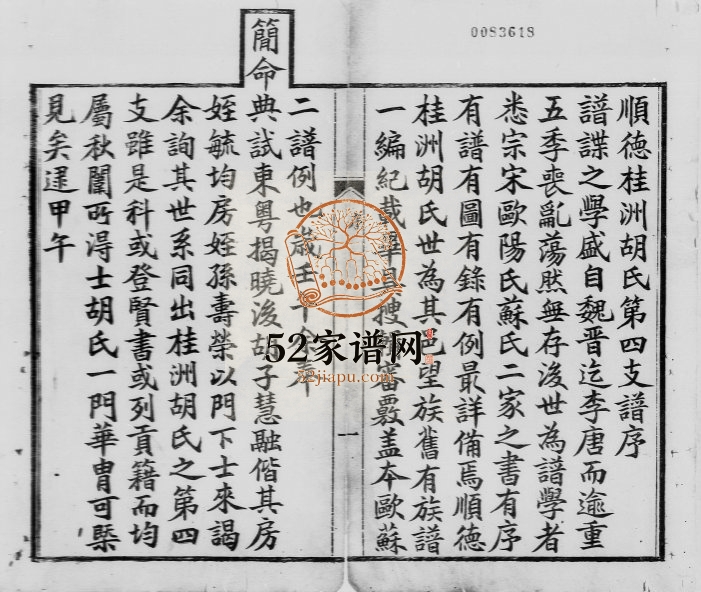 0083618
順德桂洲胡氏第四支譜序
譜諜之學盛自魏晋迄李唐而逾重
五季喪亂蕩然無存後世為譜學者
悉宗宋歐陽氏蘇氏二家之書有序
有譜有圖有錄有例最詳備焉順德
桂洲胡氏世為其邑望族舊有族譜
一編紀載畢且搜覈蓋本歐蘇
一
二譜例也歲壬午余奉
簡命
典試東粤揭曉後胡子慧融偕其房
姪毓均房姪孫壽榮以門下士來謁
余詢其世系同出桂洲胡氏之第四
支雖是科或登賢書或列貢籍而均
屬秋闈所得士胡氏一門華胄可槩
見矣逕甲午
52家谱网
52jiapu.com